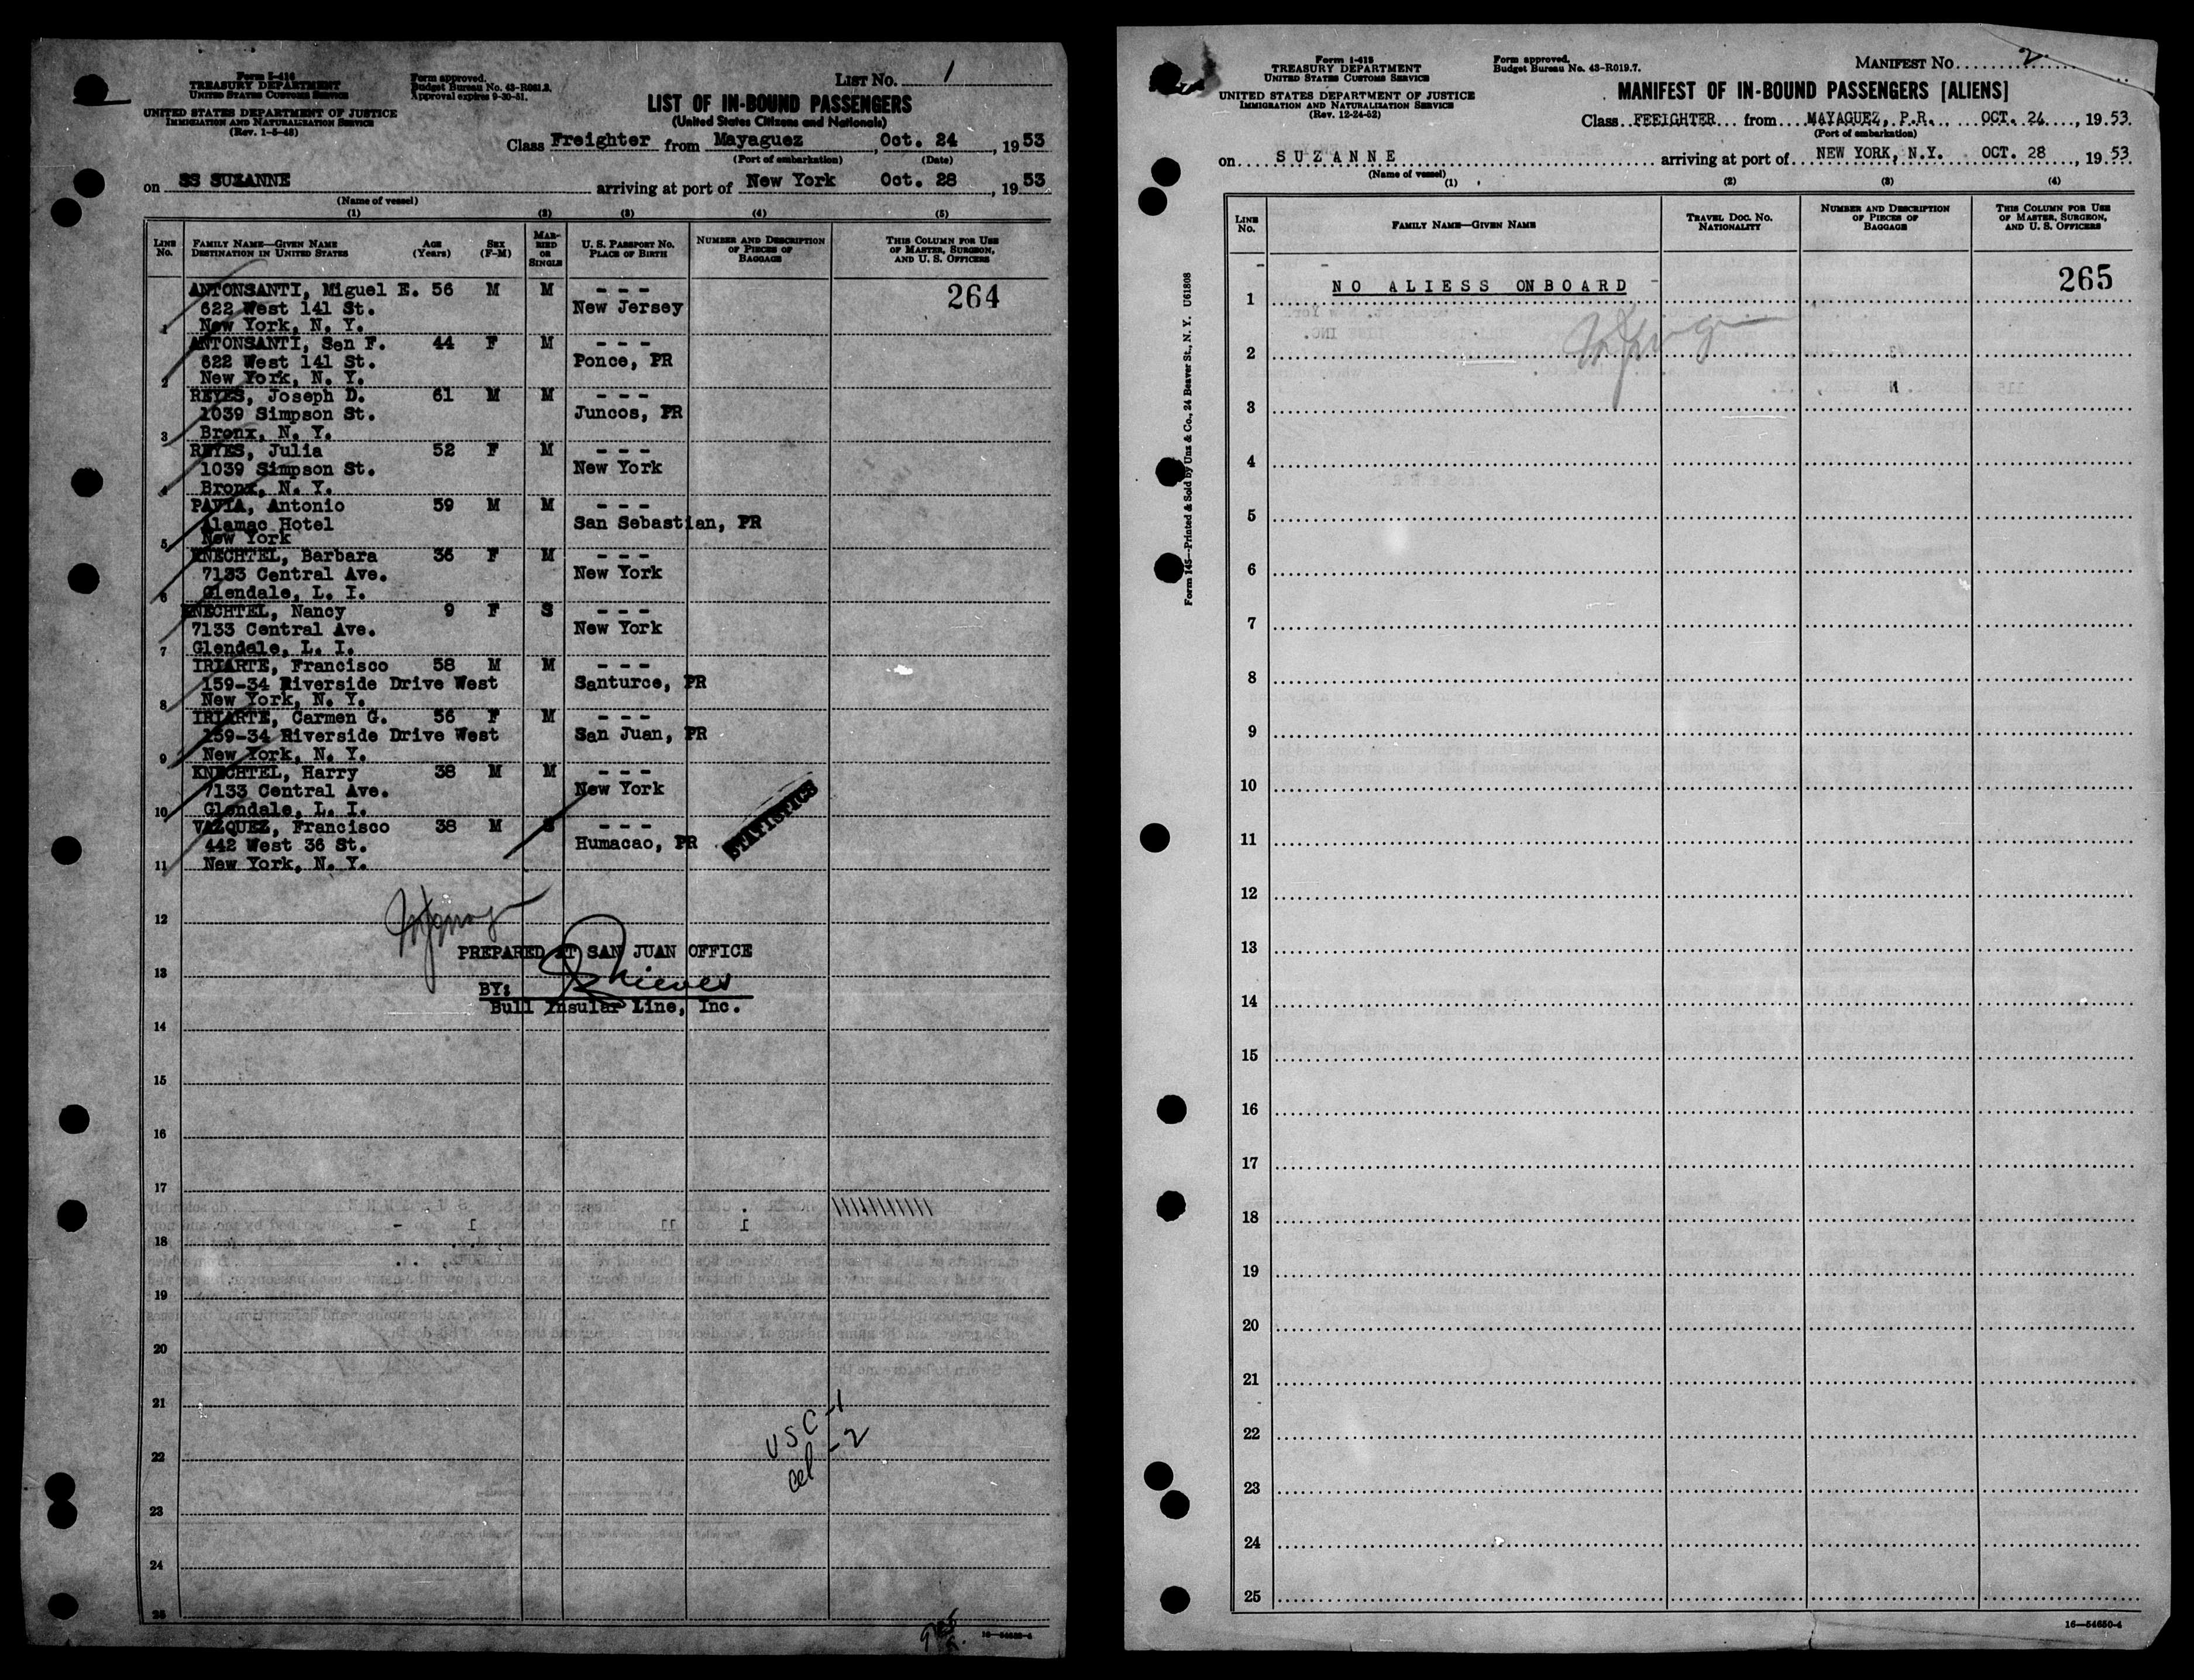 Form I-418
TREASURY DEPARTMENT
UNITED STATES CUSTOMS SERVICE
UNITED STATES DEPARTMENT OF JUSTICE
IMMIGRATION AND NATURALIZATION SERVICE
(Rev. 1-5-48)
Form approved.
Budget Bureau No. 43-R081.2.
Approval expires 9-30-51.
LIST No. 1
LIST OF IN-BOUND PASSENGERS
(United States Citizens and Nationals)
Class Freighter from Mayaguez, Oct. 24, 1953
(Port of embarkation) (Date)
on SS SUZANNE arriving at port of New York Oct. 28, 1953
(Name of vessel)
(1) (2) (3) (4) (5)
LINE No.
FAMILY NAME—GIVEN NAME
DESTINATION IN UNITED STATES
AGE (Years)
SEX (F-M)
MARRIED OR SINGLE
U. S. PASSPORT No.
PLACE OF BIRTH
NUMBER AND DESCRIPTION OF PIECES OF BAGGAGE
THIS COLUMN FOR USE OF MASTER, SURGEON, AND U. S. OFFICERS
264
ANTONSANTI, Miguel E. 56 M M - - -
622 West 141 St. New Jersey
1 New York, N. Y.
ANTONSANTI, Sen F. 44 F M - - -
622 West 141 St. Ponce, PR
2 New York, N. Y.
REYES, Joseph D. 61 M M - - -
1039 Simpson St. Juncos, PR
3 Bronx, N. Y.
REYES, Julia 52 F M - - -
1039 Simpson St. New York
4 Bronx, N. Y.
PAVIA, Antonio 59 M M - - -
Alamac Hotel San Sebastian, PR
5 New York
KNECHTEL, Barbara 36 F M - - -
7133 Central Ave. New York
6 Glendale, L. I.
KNECHTEL, Nancy 9 F S - - -
7133 Central Ave. New York
7 Glendale, L. I.
IRIARTE, Francisco 58 M M - - -
159-34 Riverside Drive West Santurce, PR
8 New York, N. Y.
IRIARTE, Carmen G. 56 F M - - -
159-34 Riverside Drive West San Juan, PR
9 New York, N. Y.
KNECHTEL, Harry 38 M M - - -
7133 Central Ave. New York
10 Glendale, L. I.
VAZQUEZ, Francisco 38 M S - - -
442 West 36 St. Humacao, PR
11 New York, N. Y.
STATISTICS
12
PREPARED AT SAN JUAN OFFICE
13
BY: Nieves
Bull Insular Line, Inc.
14
15
16
17
18
19
20
21
USC -1
22
-2
23
24
25
Form I-418
TREASURY DEPARTMENT
UNITED STATES CUSTOMS SERVICE
UNITED STATES DEPARTMENT OF JUSTICE
IMMIGRATION AND NATURALIZATION SERVICE
(Rev. 12-24-52)
Form approved.
Budget Bureau No. 43-R019.7.
MANIFEST No. 2
MANIFEST OF IN-BOUND PASSENGERS [ALIENS]
Class FEEIGHTER from MAYAGUEZ, P.R., OCT. 24, 1953
(Port of embarkation)
on SUZANNE arriving at port of NEW YORK, N.Y. OCT. 28, 1953
(Name of vessel)
(1) (2) (3) (4)
LINE No.
FAMILY NAME—GIVEN NAME
TRAVEL DOC. No.
NATIONALITY
NUMBER AND DESCRIPTION OF PIECES OF BAGGAGE
THIS COLUMN FOR USE OF MASTER, SURGEON, AND U. S. OFFICERS
265
1 NO ALIESS ONBOARD
2
3
4
5
6
7
8
9
10
11
12
13
14
15
16
17
18
19
20
21
22
23
24
25
Form 145—Printed & Sold by Unz & Co., 24 Beaver St., N. Y. U61808
16—54650-4